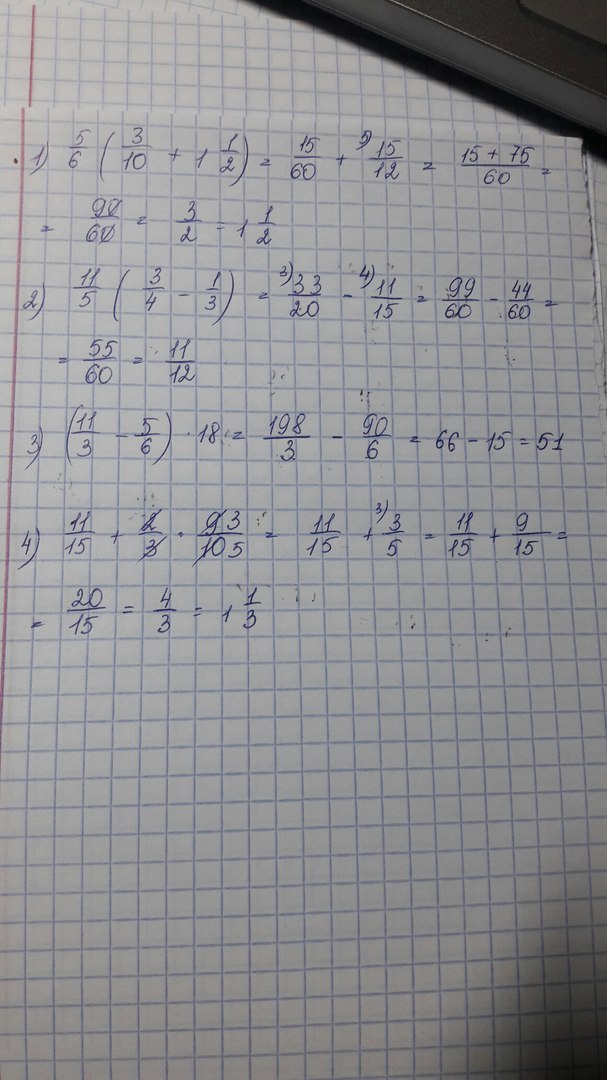 1) 5/6 ( 3/10 + 1 1/2 ) = 15/60 + 5) 15/12 = (15 + 75)/60 =
= 90/60 = 3/2 = 1 1/2
2) 11/5 ( 3/4 - 1/3 ) = 3) 33/20 - 4) 11/15 = 99/60 - 44/60 =
= 55/60 = 11/12
3) ( 11/3 - 5/6 ) · 18 = 198/3 - 90/6 = 66 - 15 = 51
4) 11/15 + 2/3 · 9 3/10 5 = 11/15 + 3) 3/5 = 11/15 + 9/15 =
= 20/15 = 4/3 = 1 1/3